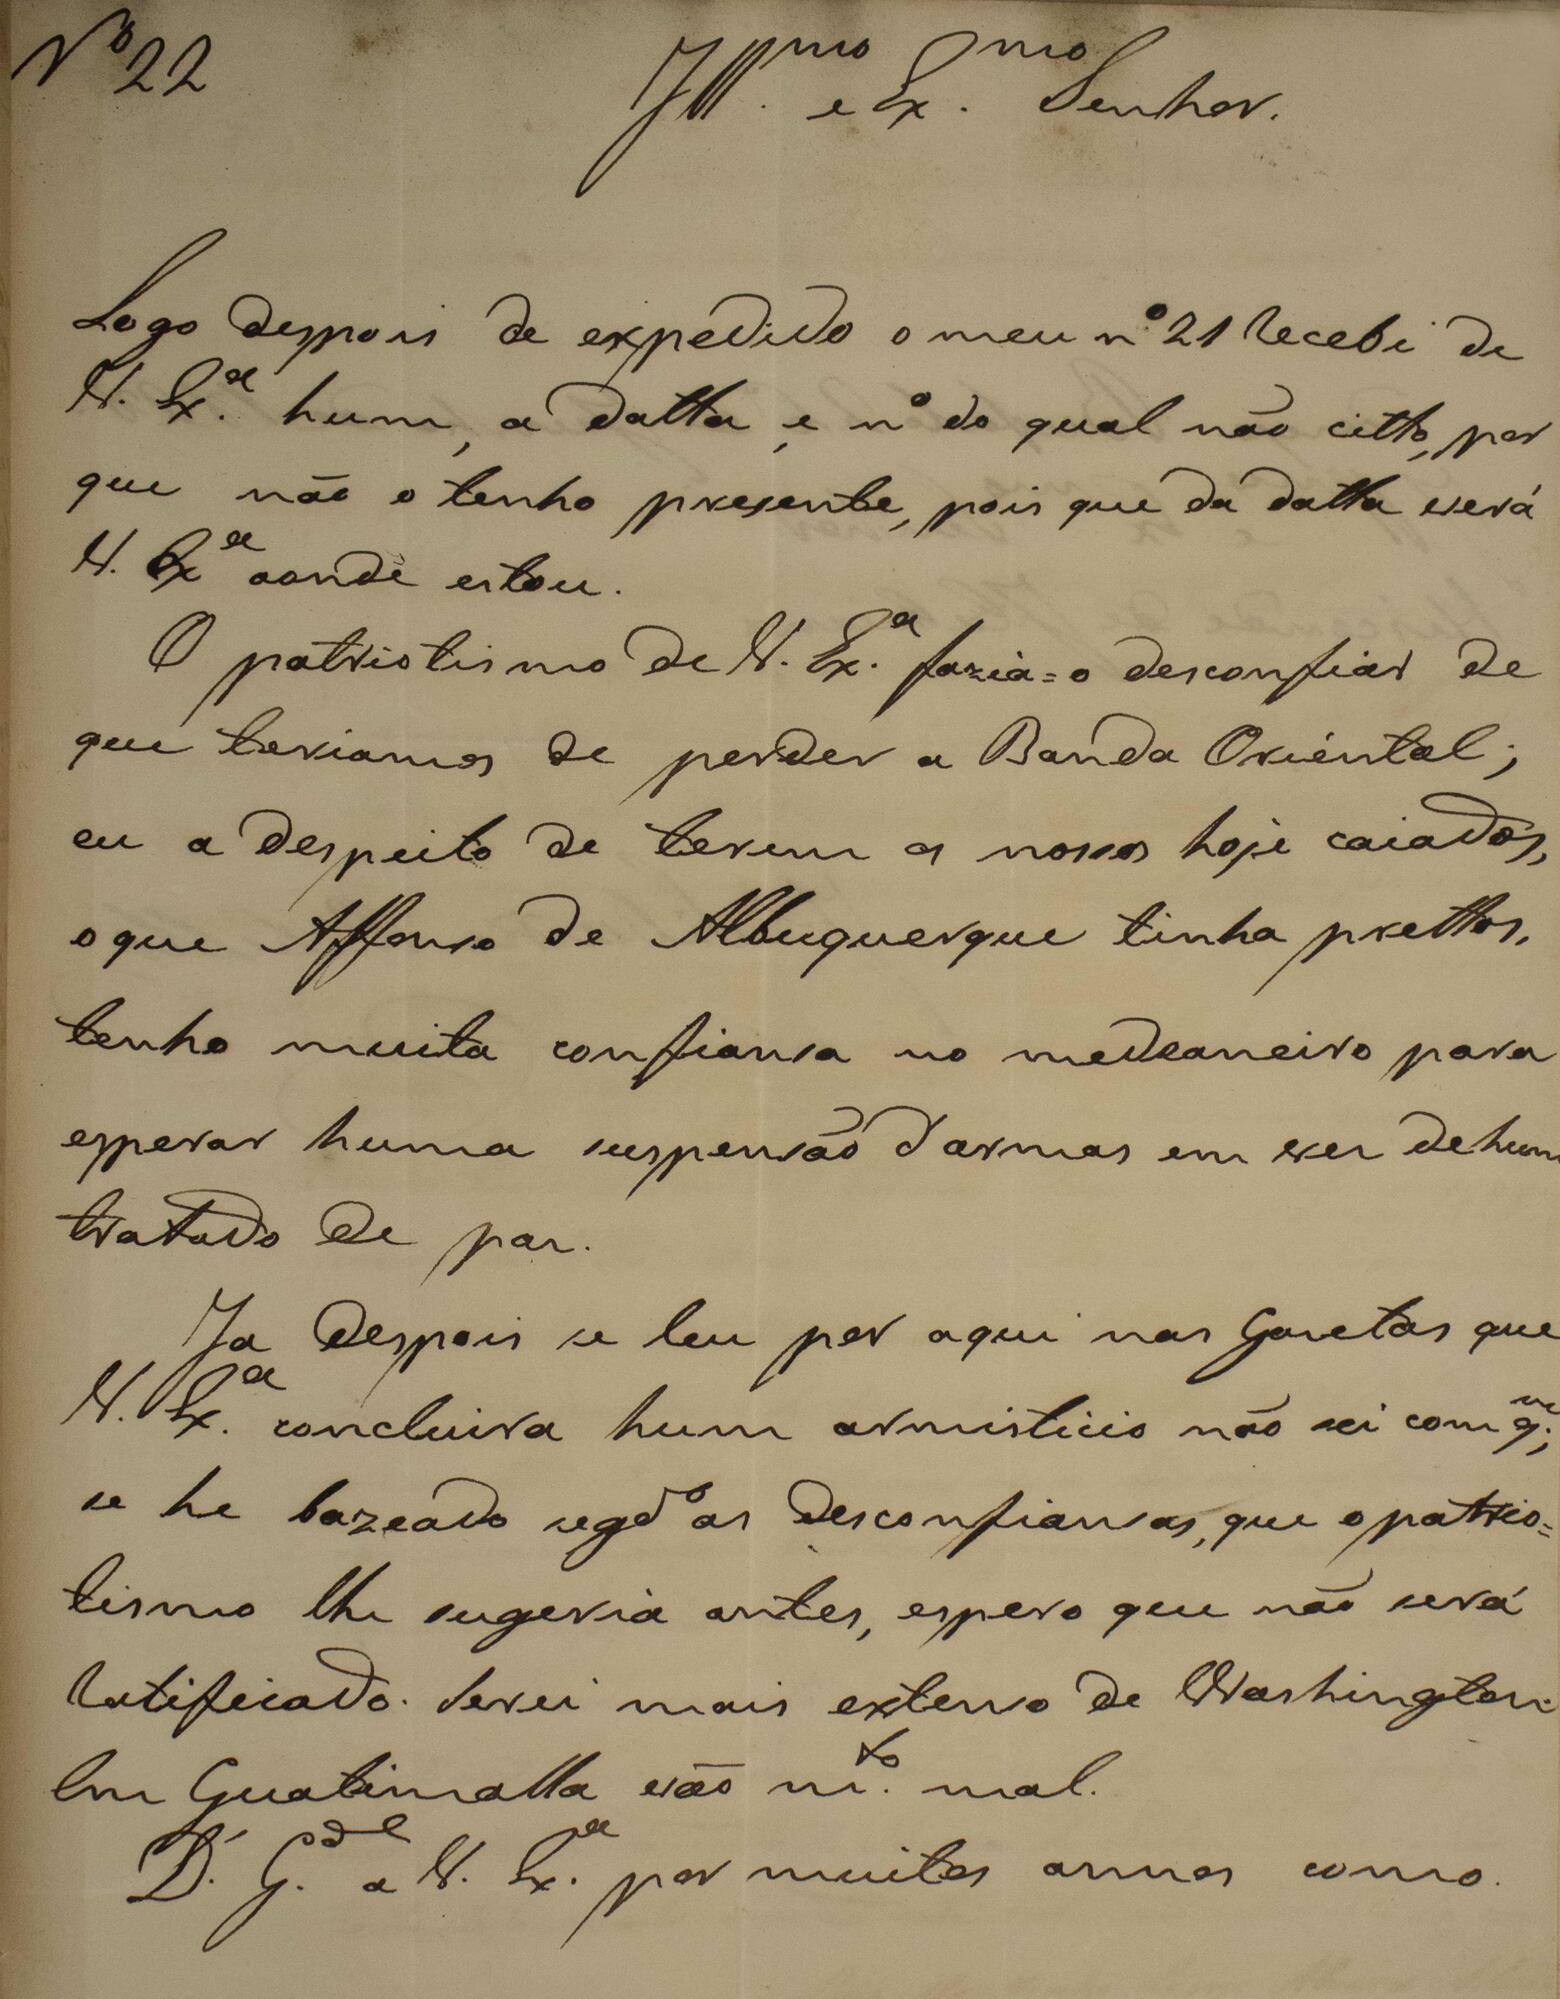 Nº 22
Illmo. e Exmo. Senhor.
Logo despois de expedido o meu nº 21 recebi de
V. Exa. hum, a datta, e nº do qual não citto, por
que não o tenho presente, pois que da datta verá
V. Exa aonde estou.
O patriotismo de V. Exa. fazia=o desconfiar de
que teriamos de perder a Banda Oriental;
eu a despeito de terem os nossos hoje caiados,
o que Affonso de Albuquerque tinha prettos,
tenho muita confiansa no medeaneiro para
esperar huma suspensão d'armas em vez de hum
tratado de paz.
Ja despois se leu por aqui nas Gazetas que
V. Exa. concluira hum armisticio não sei com qm;
se he bazeado segdo as desconfiansas, que o patrio=
tismo lhe sugeria antes, espero que não será
ratificado. Serei mais extenso de Washington.
Em Guatimalla vão mto. mal.
D.' G.de a V. Exa. por muitos annos como.